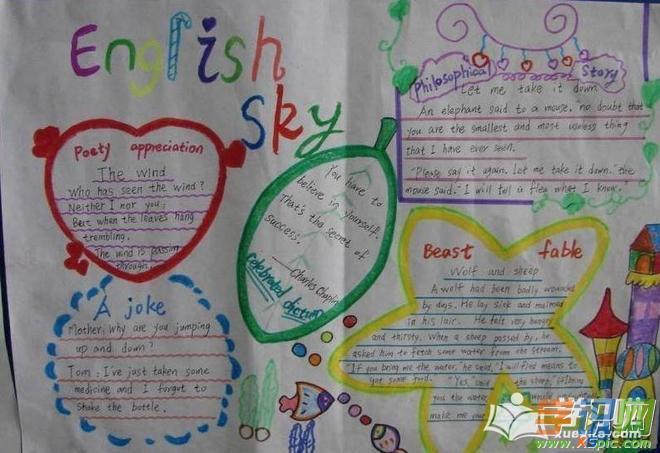 English
Sky
Poety appreciation
The Wind
Who has seen the wind?
Neither I nor you;
But when the leaves hang
trembling.
The wind is passin
through.
A joke
Mother: Why are you jumping
up and down?
Tom: I've just taken some
medicine and I forgot to
Shake the bottle.
You have to
believe in yourself.
That's the secret of
success.
——Charles Chaplin
celebrated dictum
Philosophical Story
Let me take it down
An elephant said to a mouse, "no doubt that
you are the smallest and most useless thing
that I have ever seen.
"Please say it again. Let me take it down." the
mouse said. "I will tell a flea what I know."
Beast fable
Wolf and sheep
A wolf had been badly wounded
by dogs. He lay sick and maimed
in his lair. He felt very hungry
and thirsty. When a sheep passed by, he
asked him to fetch some water from the stream.
"If you bring me the water, he said, "I will find means to
get some food.
"Yes, said the sheep, "if I bring
you the water, you would
make me your
学识网
www.xuexila.com
www.XSpic.com